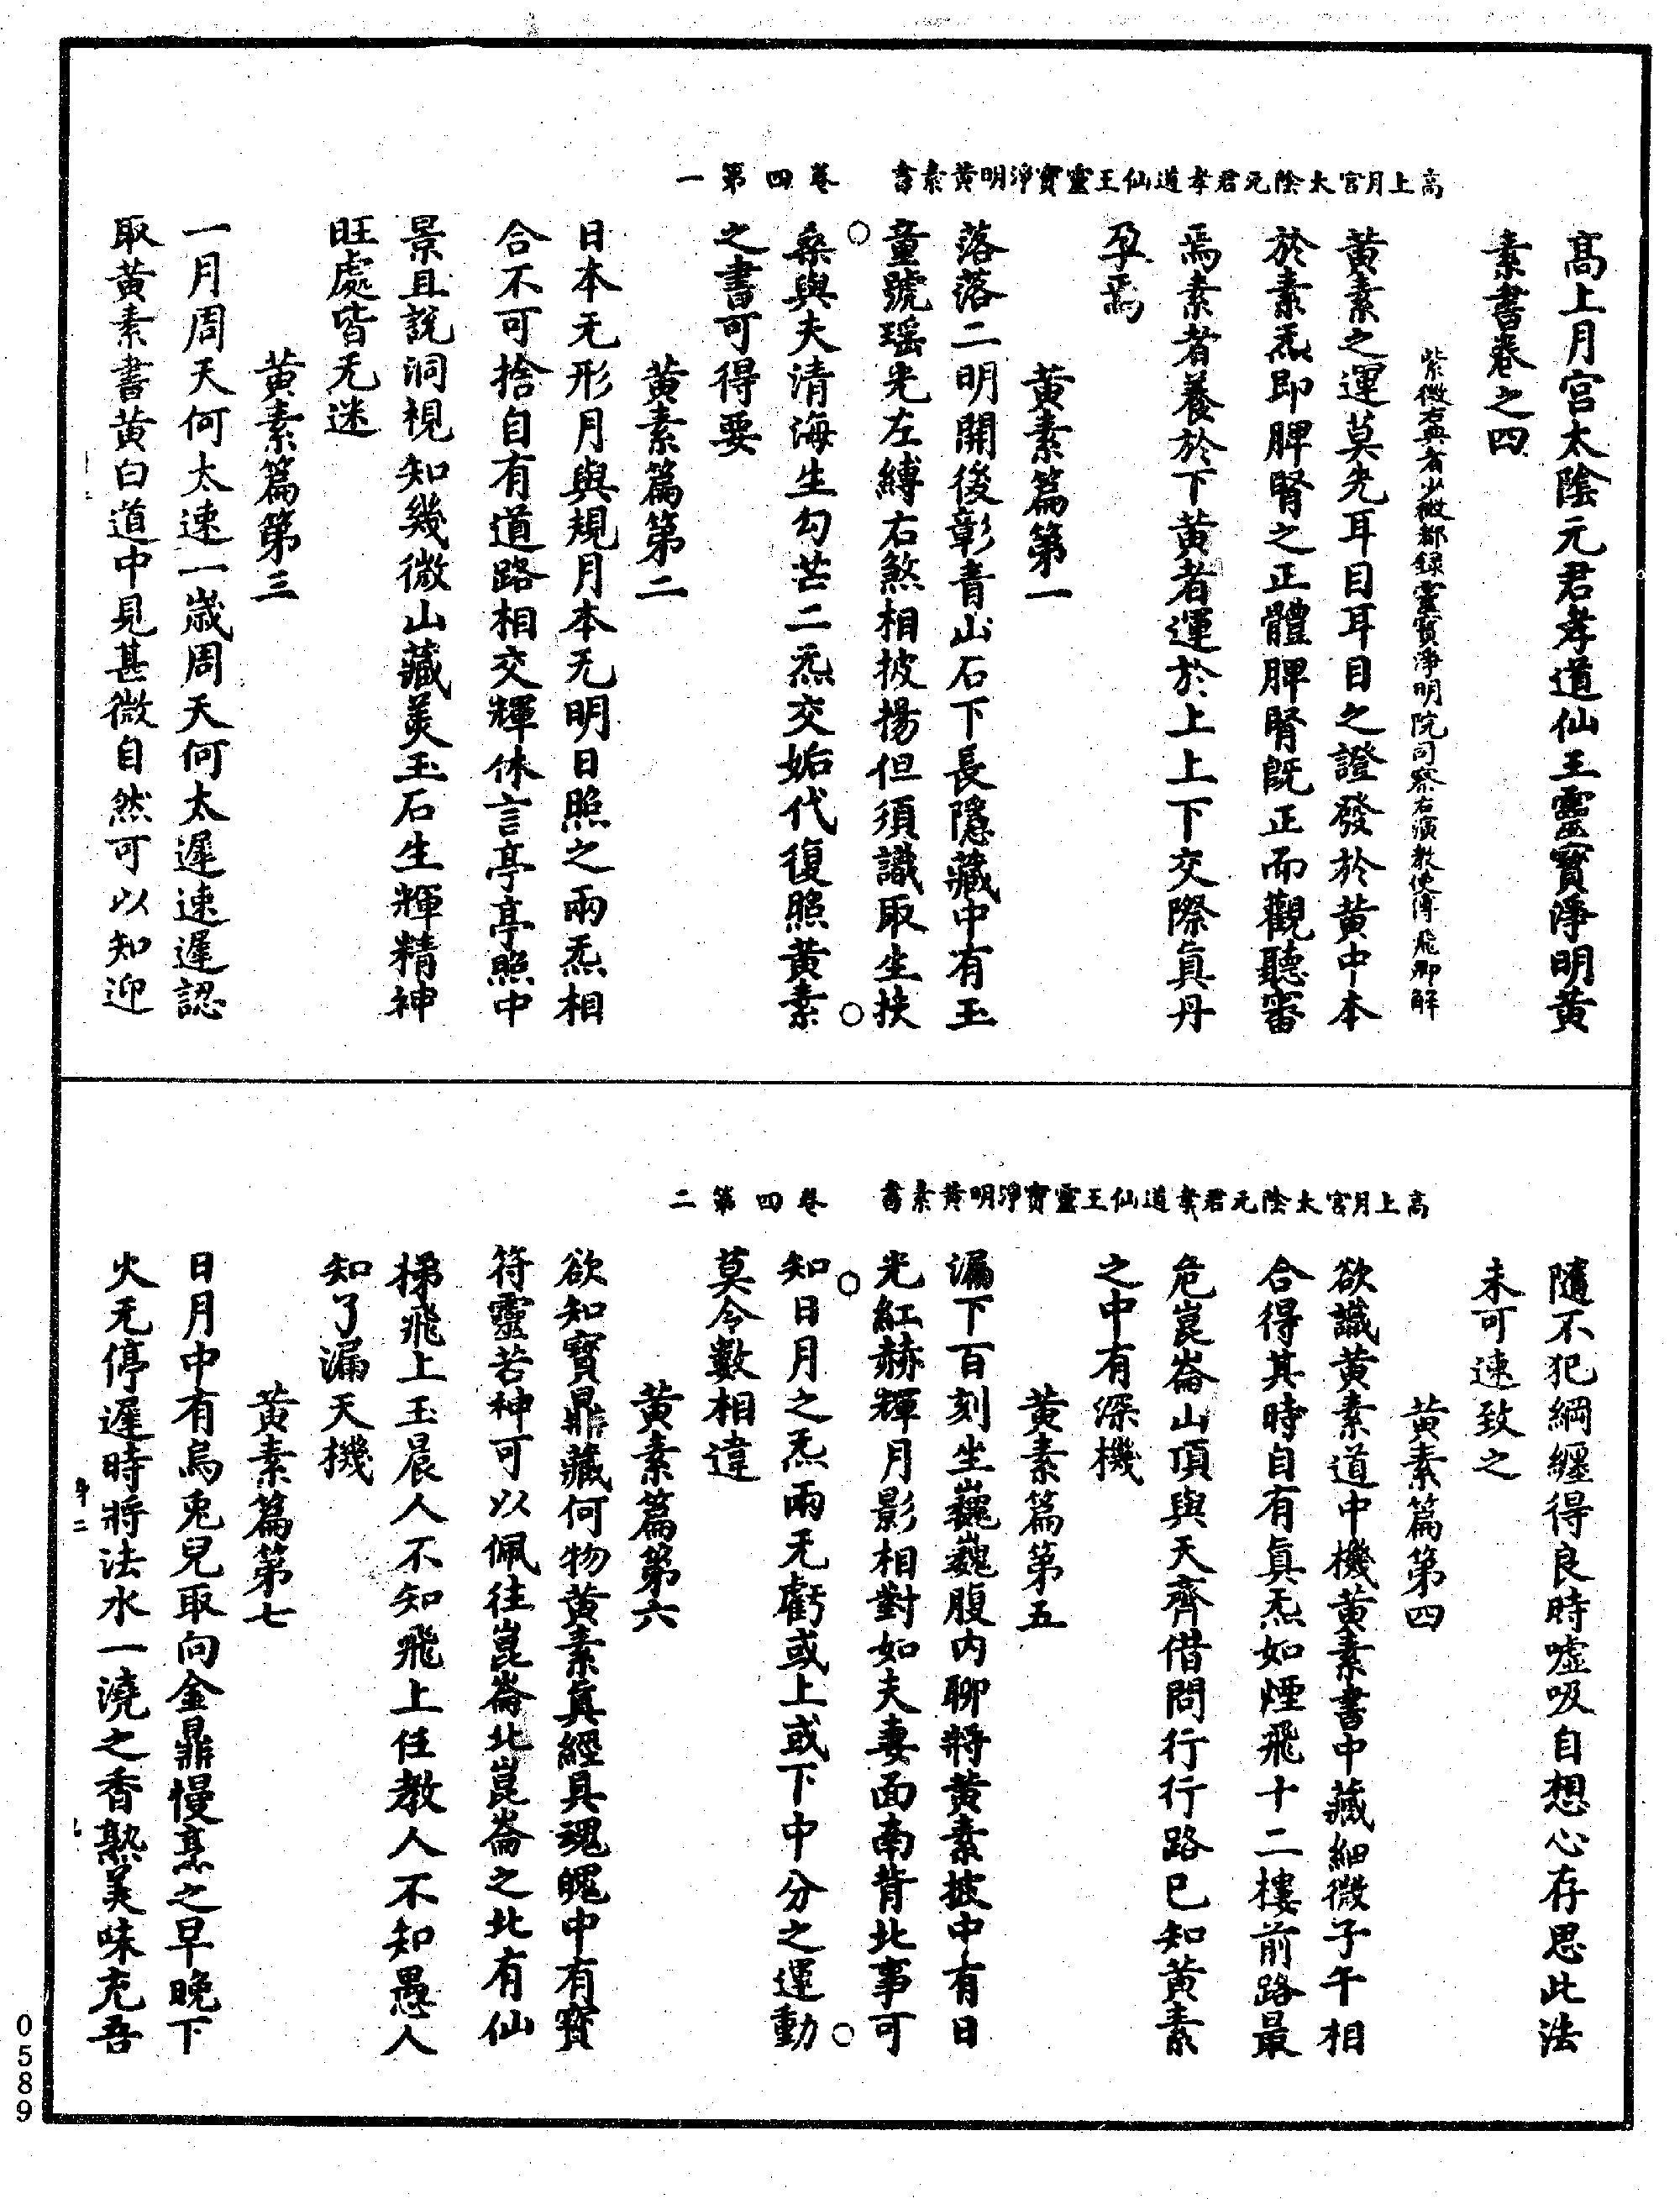 高上月宮太陰元君孝道仙王靈寶淨明黃素書　卷四第一
高上月宮太陰元君孝道仙王靈寶淨明黃
素書卷之四
紫微右典者少微都錄靈寶淨明院司察右演教使傅飛卿解
黃素之運莫先耳目耳目之證發於黃中本
於素炁即脾腎之正體脾腎既正而觀聽審
焉素者養於下黃者運於上上下交際眞丹
孕焉
黃素篇第一
落落二明開後彰青山石下長隱藏中有玉
童號瑶光左縛右煞相披揚但須識取生扶
桑與夫清海生勾芒二炁交姤代復照黃素
之書可得要
黃素篇第二
日本无形月與規月本无明日照之兩炁相
合不可捨自有道路相交輝休言亭亭照中
景且說洞視知幾微山藏美玉石生輝精神
旺處皆无迷
黃素篇第三
一月周天何太速一歲周天何太遲速遲認
取黃素書黃白道中見甚微自然可以知迎
高上月宮太陰元君孝道仙王靈寶淨明黃素書　卷四第二
隨不犯綱纏得良時噓吸自想心存思此法
未可速致之
黃素篇第四
欲識黃素道中機黃素書中藏細微子午相
合得其時自有眞炁如煙飛十二樓前路最
危崑崙山頂與天齊借問行行路已知黃素
之中有深機
黃素篇第五
漏下百刻坐巍巍腹内聊將黃素披中有日
光紅赫輝月影相對如夫妻面南背北事可
知日月之炁兩无虧或上或下中分之運動
莫令數相違
黃素篇第六
欲知寶鼎藏何物黃素眞經具魂魄中有寶
符靈若神可以佩往崑崙北崑崙之北有仙
梯飛上玉晨人不知飛上任教人不知愚人
知了漏天機
黃素篇第七
日月中有烏兎兒取向金鼎慢烹之早晚下
火无停遲時將法水一澆之香熟美味充吾
0589